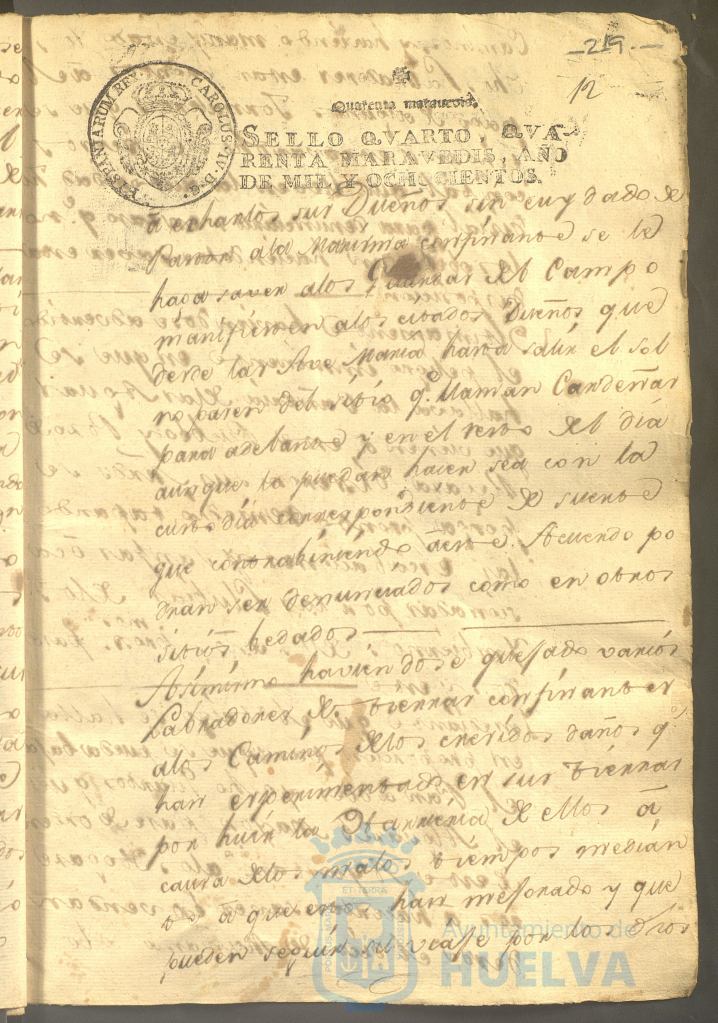 -219.-
12
Quarenta maravedis.
CAROLUS IV D G HISPANIARUM REX
SELLO QVARTO, QVA-
RENTA MARAVEDIS, AÑO
DE MIL Y OCHOCIENTOS.
a echarlos sus Dueños sin cuydado de
Pasar ala Marisma confinante se le
haga saver alos Guardas del Campo
manifiesten alos citados Dueños que
desde las Ave Maria hasta salir el sol
no pasen del sitio q.e llaman Cardeñas
para adelante y en el resto del dia
aunque lo puedan hacer sea con la
custodia correspondiente de suerte
que contrabiniendo á este Acuerdo po
dran ser denunciados como en otros
sitios bedados
Asimismo haviendose quejado varios
Labradores de tierras confinantes
alos Caminos delos crecidos daños q.e
han experimentado en sus tierras
por huir la Harrieria de ellos á
causa delos malos tiempos median
te á que estos han mejorado y que
pueden seguir su viaje por los
ET TERRA
Ayuntamiento de
HUELVA